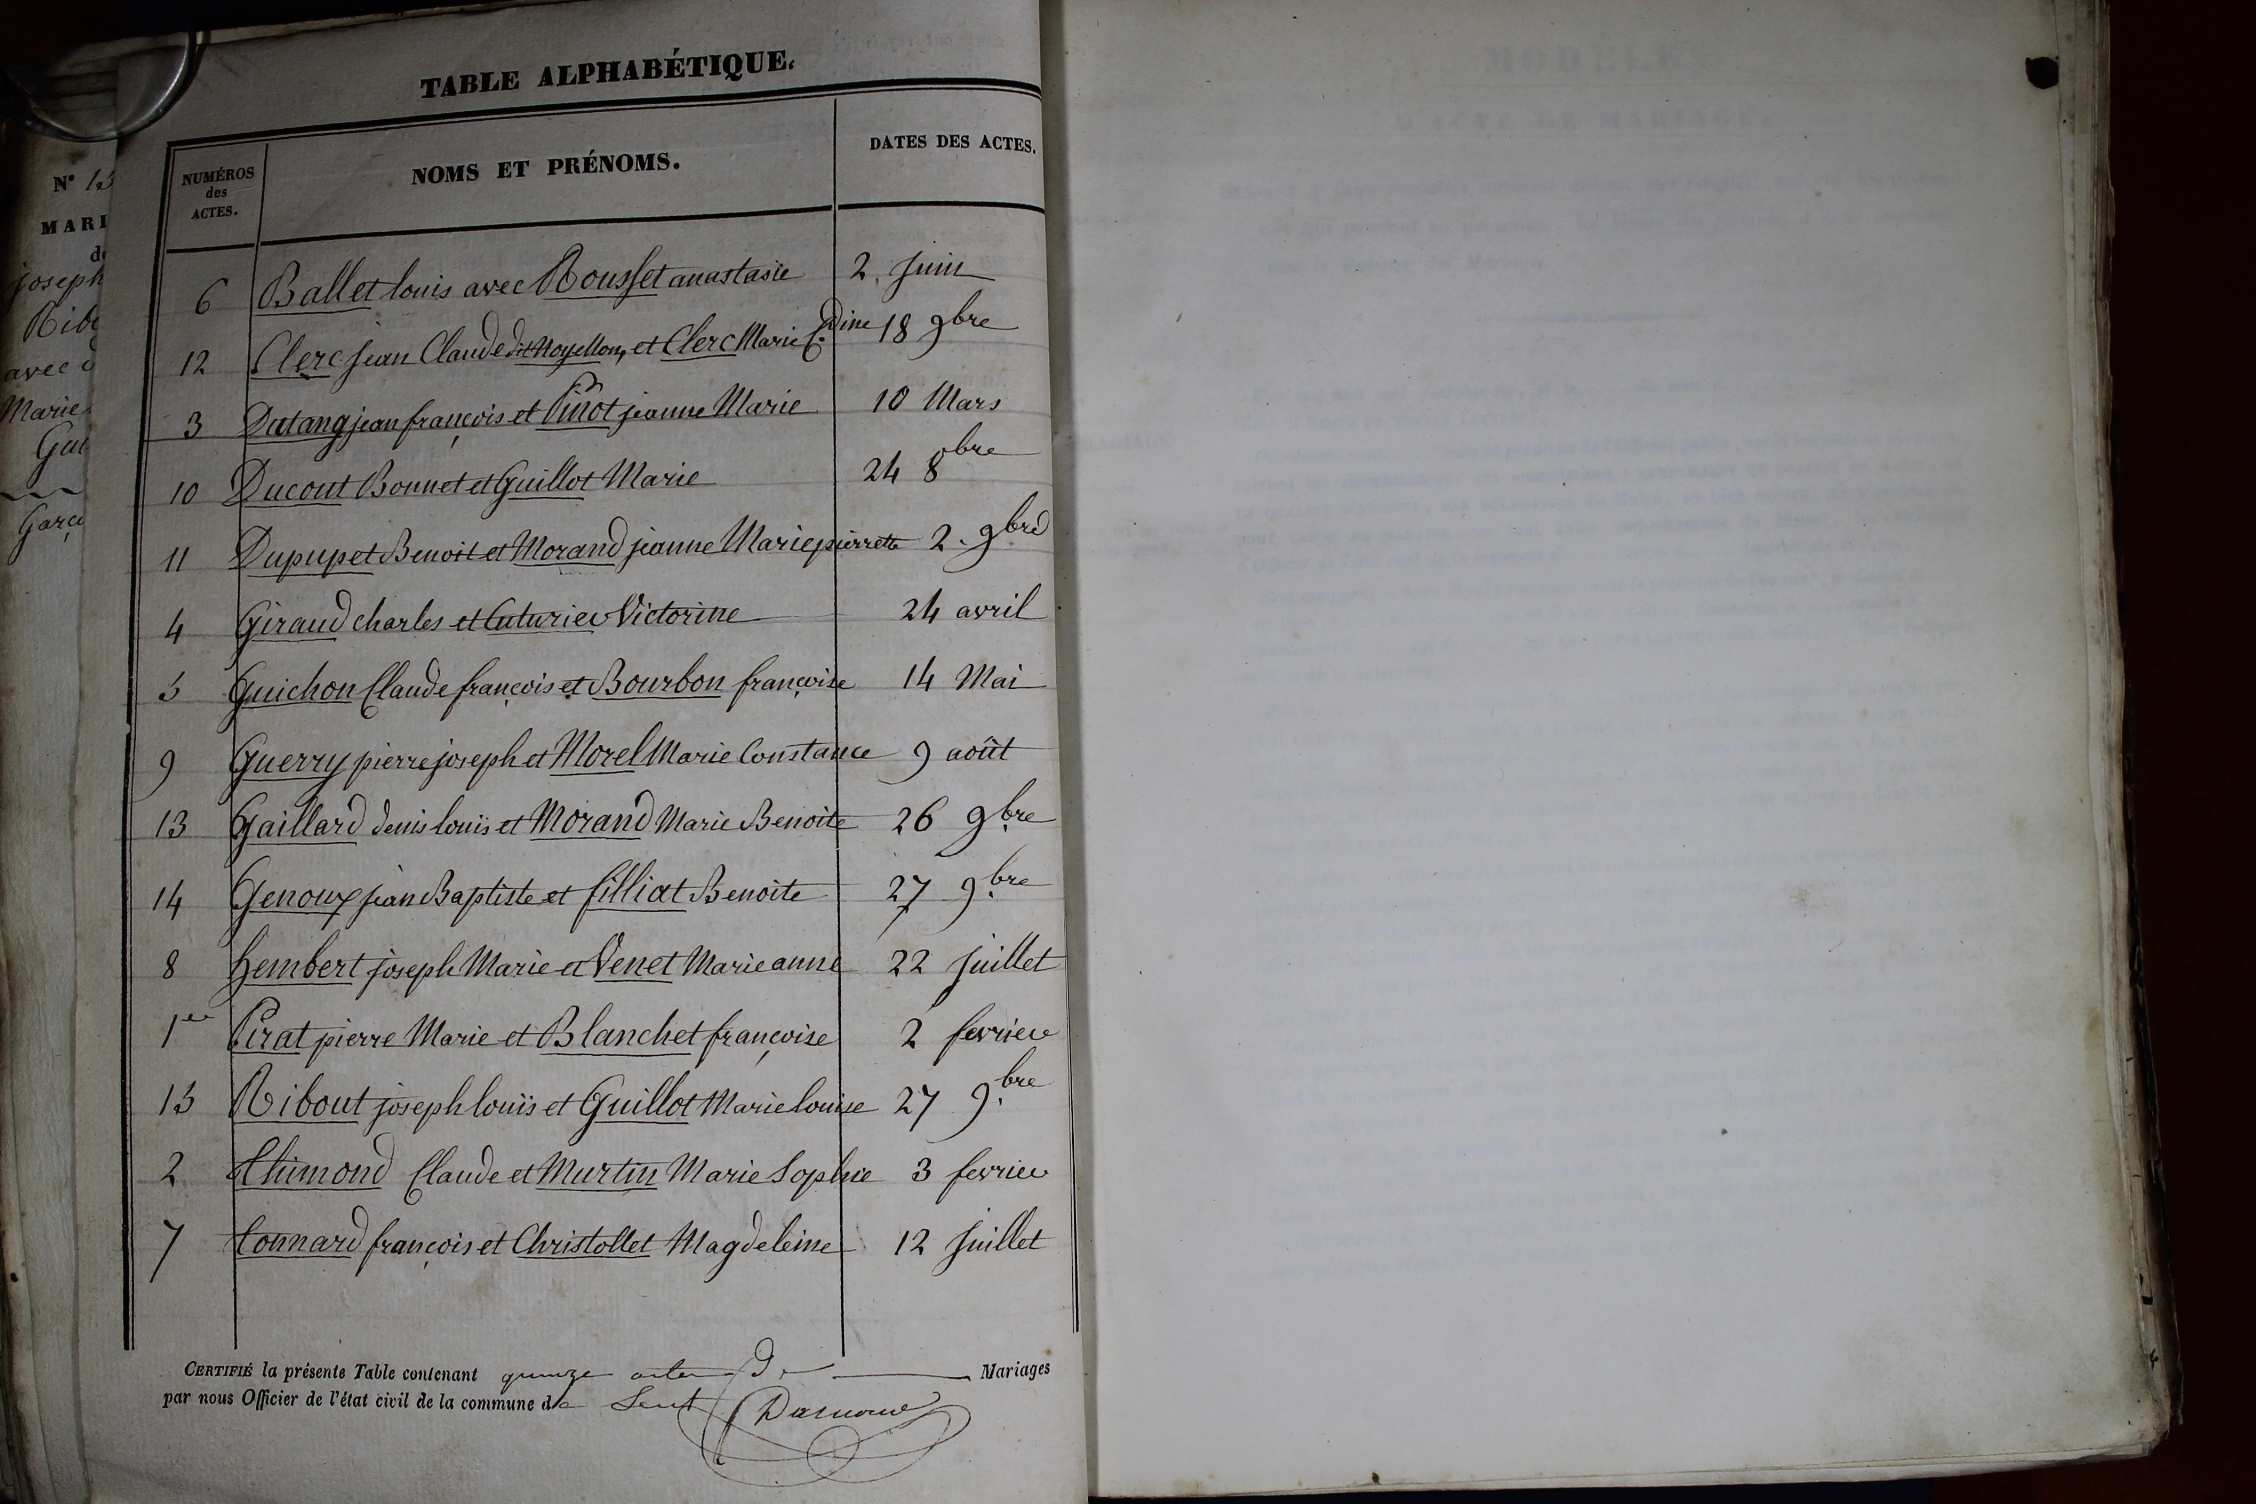 TABLE ALPHABÉTIQUE.
NUMÉROS des ACTES.
NOMS ET PRÉNOMS.
DATES DES ACTES.
6 Ballet louis avec Rousset anastasie 2. Juin
12 Clerc jean Claude dit Noyellon, et Clerc Marie C.dine 18 9bre
3 Datang jean françois et Pinot jeanne Marie 10 Mars
10 Ducout Bonnet et Guillot Marie 24 8bre
11 Dupupet Benoit et Morand jeanne Marie pierrette 2. 9bre
4 Giraud charles et Cuturier Victorine 24 avril
5 Guichon Claude françois et Bourbon françoise 14 Mai
9 Guerry pierre joseph et Morel Marie Constance 9 août
13 Gaillard denis louis et Morand Marie Benoite 26 9bre
14 Genoux jean Baptiste et filliat Benoite 27 9bre
8 hembert joseph Marie et Venet Marie anne 22 Juillet
1er Pirat pierre Marie et Blanchet françoise 2 fevrier
15 Ribout joseph louis et Guillot Marie louise 27 9bre
2 Thimond Claude et Murtin Marie Sophie 3 fevrier
7 Tonnard françois et Christollet Magdeleine 12 Juillet
CERTIFIÉ la présente Table contenant quinze actes de Mariages
par nous Officier de l'état civil de la commune de
N° 15
MARI
de
joseph
Ribo
avec
Marie
Gui
Garço